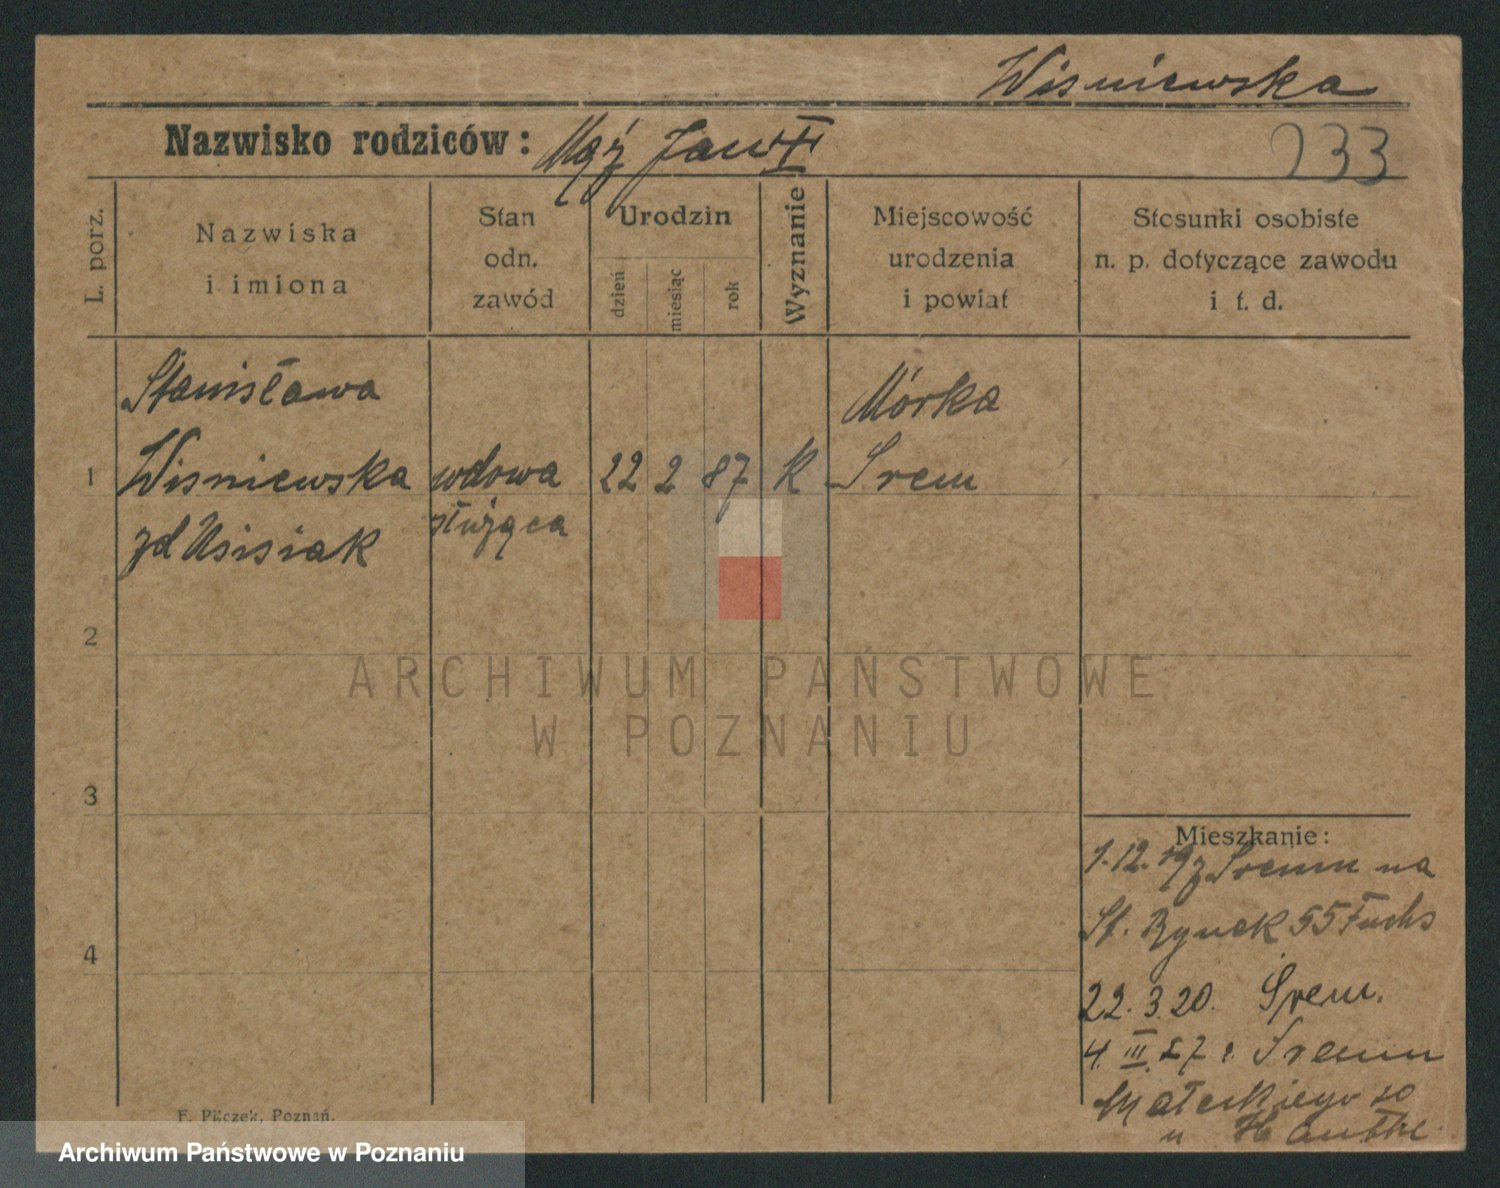 Wiśniewska
Nazwisko rodziców: Mąż Jan †
233
L. porz.
Nazwiska
i imiona
Stan
odn.
zawód
Urodzin
dzień
miesiąc
rok
Wyznanie
Miejscowość
urodzenia
i powiat
Stosunki osobiste
n. p. dotyczące zawodu
i t. d.
Stanisława
Mórka
1 Wisniewska wdowa 22 2 87 k Srem
zd służąca
2
3
4
Mieszkanie:
1.12.19 z Sremu na
St. Rynek 55 Fuchs
22.3.20. Śrem.
4.III.27 z Sremu
Małeckiego
u
F. Pilczek, Poznań.
ARCHIWUM PAŃSTWOWE
W POZNANIU
Archiwum Państwowe w Poznaniu